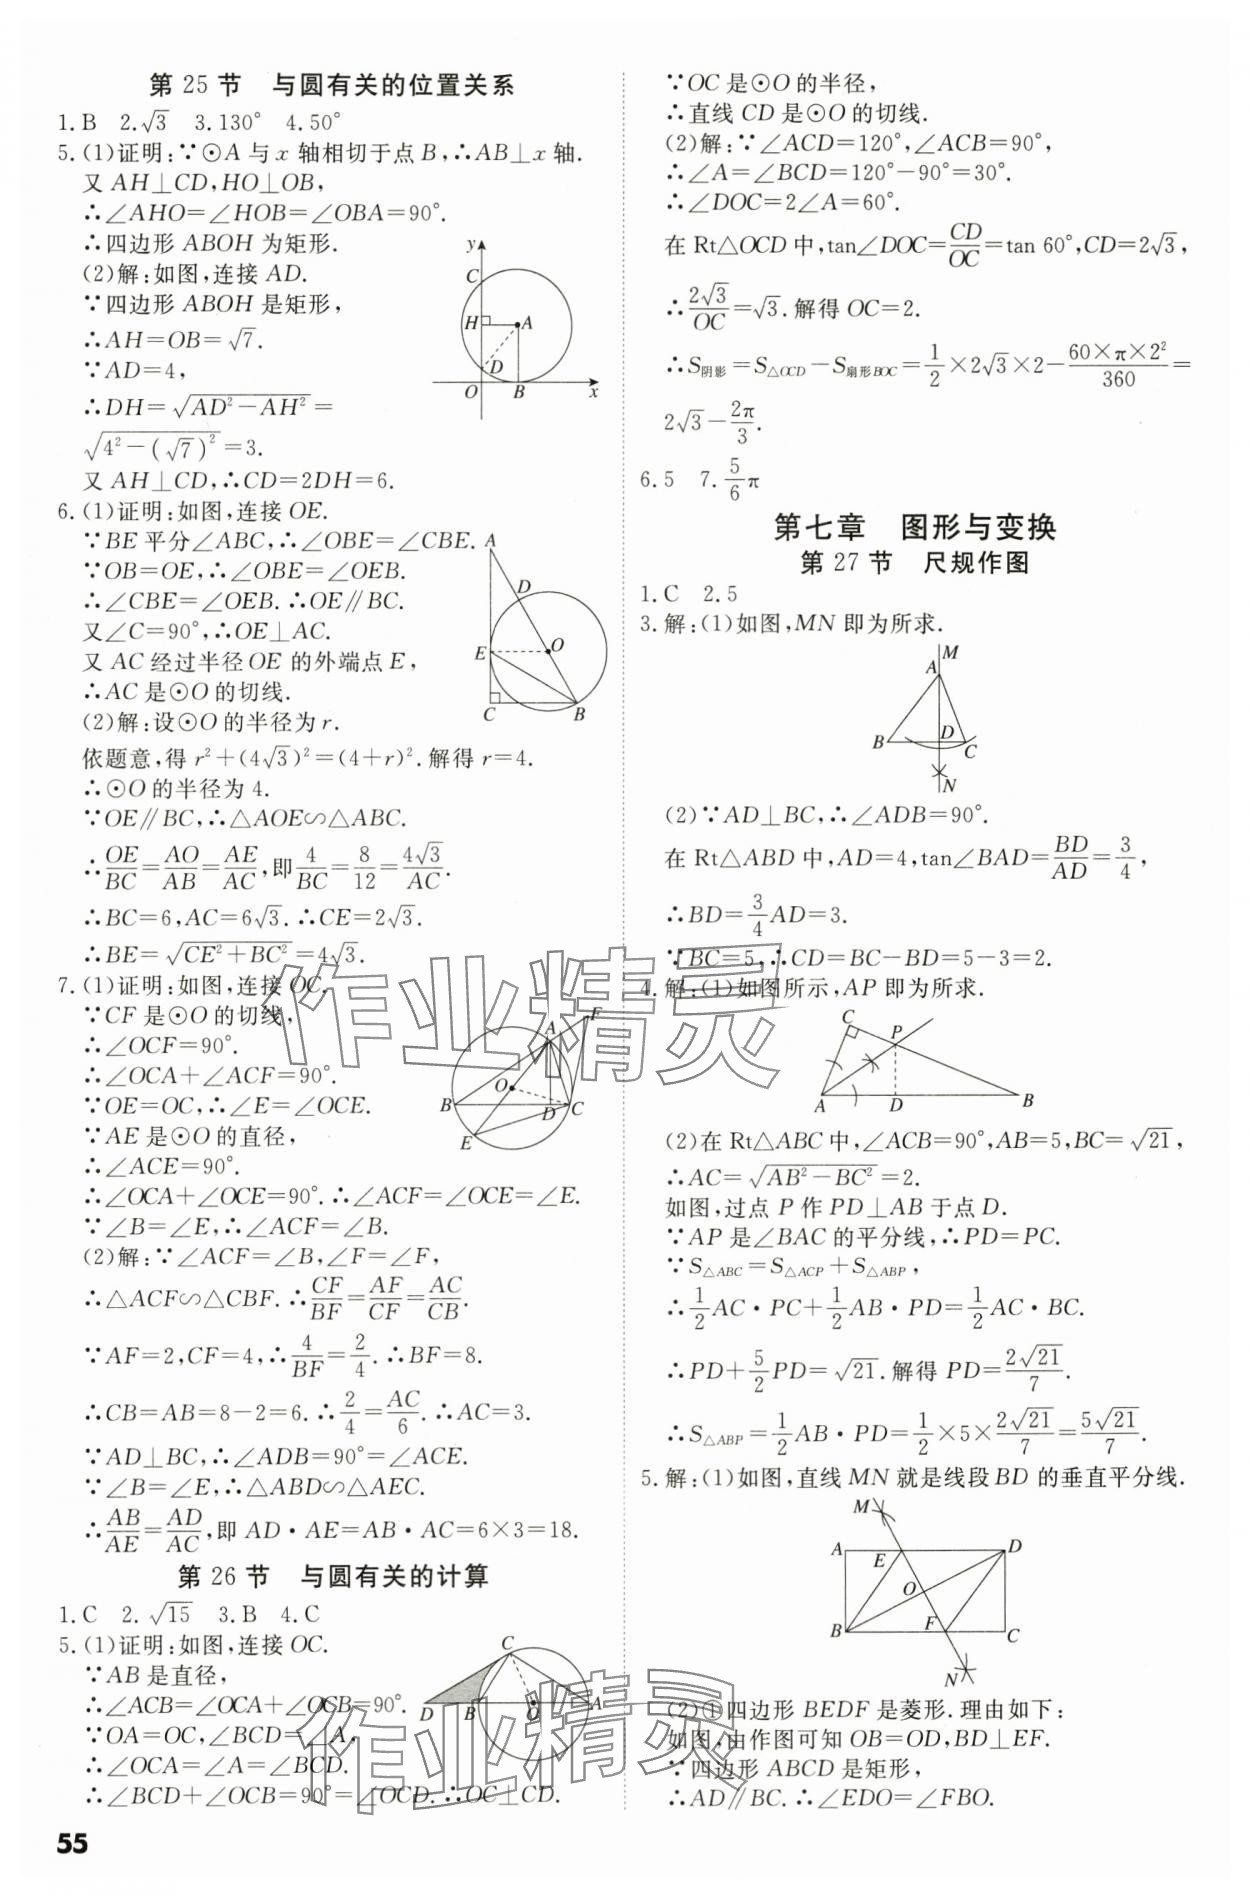 第 25 节　与圆有关的位置关系
1.B　2.√3　3.130°　4.50°
5.(1)证明:∵⊙A 与 x 轴相切于点 B,∴AB⊥x 轴.
又 AH⊥CD,HO⊥OB,
∴∠AHO=∠HOB=∠OBA=90°.
∴四边形 ABOH 为矩形.
(2)解:如图,连接 AD.
∵四边形 ABOH 是矩形,
∴AH=OB=√7.
∵AD=4,
∴DH=√(AD²-AH²)=
√(4²-(√7)²)=3.
又 AH⊥CD,∴CD=2DH=6.
y
C
H
A
D
O
B
x
6.(1)证明:如图,连接 OE.
∵BE 平分∠ABC,∴∠OBE=∠CBE.
∵OB=OE,∴∠OBE=∠OEB.
∴∠CBE=∠OEB.∴OE∥BC.
又∠C=90°,∴OE⊥AC.
又 AC 经过半径 OE 的外端点 E,
∴AC 是⊙O 的切线.
(2)解:设⊙O 的半径为 r.
依题意,得 r²+(4√3)²=(4+r)².解得 r=4.
∴⊙O 的半径为 4.
∵OE∥BC,∴△AOE∽△ABC.
∴OE/BC=AO/AB=AE/AC,即4/BC=8/12=4√3/AC.
∴BC=6,AC=6√3.∴CE=2√3.
∴BE=√(CE²+BC²)=4√3.
A
D
E
O
C
B
7.(1)证明:如图,连接 OC.
∵CF 是⊙O 的切线,
∴∠OCF=90°.
∴∠OCA+∠ACF=90°.
∵OE=OC,∴∠E=∠OCE.
∵AE 是⊙O 的直径,
∴∠ACE=90°.
∴∠OCA+∠OCE=90°.∴∠ACF=∠OCE=∠E.
∵∠B=∠E,∴∠ACF=∠B.
(2)解:∵∠ACF=∠B,∠F=∠F,
∴△ACF∽△CBF.∴CF/BF=AF/CF=AC/CB.
∵AF=2,CF=4,∴4/BF=2/4.∴BF=8.
∴CB=AB=8-2=6.∴2/4=AC/6.∴AC=3.
∵AD⊥BC,∴∠ADB=90°=∠ACE.
∵∠B=∠E,∴△ABD∽△AEC.
∴AB/AE=AD/AC,即 AD·AE=AB·AC=6×3=18.
A
F
O
B
D
C
E
第 26 节　与圆有关的计算
1.C　2.√15　3.B　4.C
5.(1)证明:如图,连接 OC.
∵AB 是直径,
∴∠ACB=∠OCA+∠OCB=90°.
∵OA=OC,∠BCD=∠A,
∴∠OCA=∠A=∠BCD.
∴∠BCD+∠OCB=90°=∠OCD.∴OC⊥CD.
C
D
B
O
A
55
∵OC 是⊙O 的半径,
∴直线 CD 是⊙O 的切线.
(2)解:∵∠ACD=120°,∠ACB=90°,
∴∠A=∠BCD=120°-90°=30°.
∴∠DOC=2∠A=60°.
在 Rt△OCD 中,tan∠DOC=CD/OC=tan 60°,CD=2√3,
∴2√3/OC=√3.解得 OC=2.
∴S阴影=S△OCD-S扇形BOC=1/2×2√3×2-60×π×2²/360=
2√3-2π/3.
6.5　7.5/6π
第七章　图形与变换
第 27 节　尺规作图
1.C　2.5
3.解:(1)如图,MN 即为所求.
M
A
B
D
C
N
(2)∵AD⊥BC,∴∠ADB=90°.
在 Rt△ABD 中,AD=4,tan∠BAD=BD/AD=3/4,
∴BD=3/4AD=3.
∵BC=5,∴CD=BC-BD=5-3=2.
4.解:(1)如图所示,AP 即为所求.
C
P
A
D
B
(2)在 Rt△ABC 中,∠ACB=90°,AB=5,BC=√21,
∴AC=√(AB²-BC²)=2.
如图,过点 P 作 PD⊥AB 于点 D.
∵AP 是∠BAC 的平分线,∴PD=PC.
∵S△ABC=S△ACP+S△ABP,
∴1/2AC·PC+1/2AB·PD=1/2AC·BC.
∴PD+5/2PD=√21.解得 PD=2√21/7.
∴S△ABP=1/2AB·PD=1/2×5×2√21/7=5√21/7.
5.解:(1)如图,直线 MN 就是线段 BD 的垂直平分线.
M
A
E
D
O
B
F
C
N
(2)①四边形 BEDF 是菱形.理由如下:
如图,由作图可知 OB=OD,BD⊥EF.
∵四边形 ABCD 是矩形,
∴AD∥BC.∴∠EDO=∠FBO.
作业精灵
作业精灵